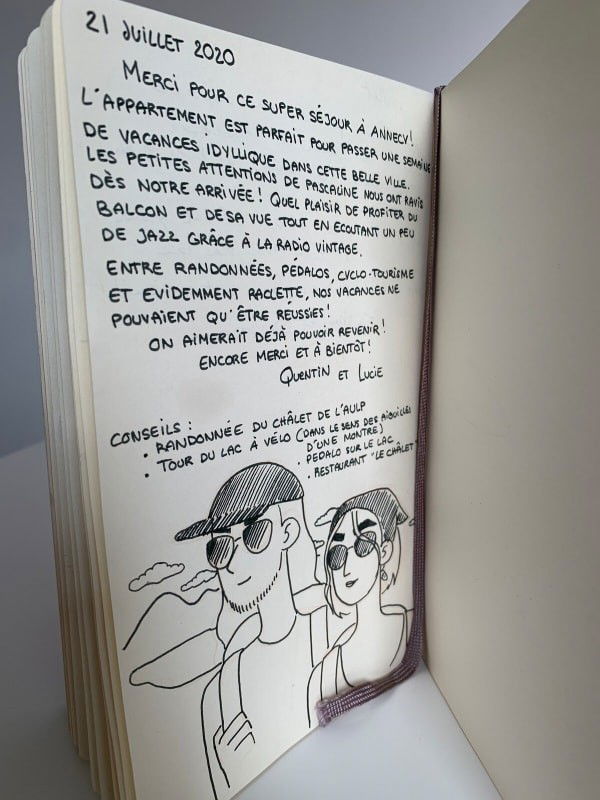 21 JUILLET 2020
MERCI POUR CE SUPER SÉJOUR À ANNECY!
L'APPARTEMENT EST PARFAIT POUR PASSER UNE SEMAINE
DE VACANCES IDYLLIQUE DANS CETTE BELLE VILLE.
LES PETITES ATTENTIONS DE PASCALINE NOUS ONT RAVIS
DÈS NOTRE ARRIVÉE! QUEL PLAISIR DE PROFITER DU
BALCON ET DE SA VUE TOUT EN ECOUTANT UN PEU
DE JAZZ GRÂCE À LA RADIO VINTAGE.
ENTRE RANDONNÉES, PÉDALOS, CYCLO-TOURISME
ET EVIDEMMENT RACLETTE, NOS VACANCES NE
POUVAIENT QU'ÊTRE RÉUSSIES!
ON AIMERAIT DÉJÀ POUVOIR REVENIR!
ENCORE MERCI ET À BIENTÔT!
QUENTIN ET LUCIE
CONSEILS :
• RANDONNÉE DU CHÂLET DE L'AULP
• TOUR DU LAC À VÉLO (DANS LE SENS DES AIGUILLES
D'UNE MONTRE)
• PÉDALO SUR LE LAC
• RESTAURANT "LE CHÂLET"